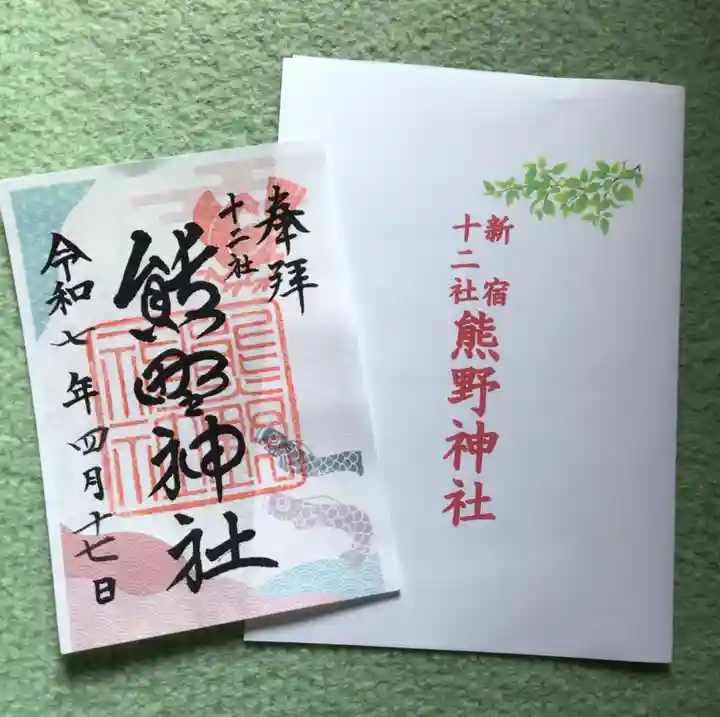 奉拝
十二社
熊野神社
令和七年四月十七日
新宿
十二社
熊野神社